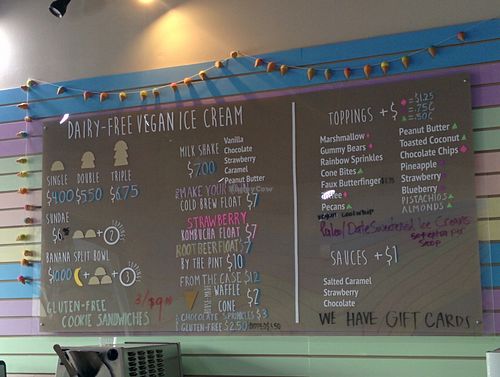 DAIRY-FREE VEGAN ICE CREAM
SINGLE DOUBLE TRIPLE
$4.00 $5.50 $6.75
SUNDAE
BANANA SPLIT BOWL
$10.00
GLUTEN-FREE
COOKIE SANDWICHES
MILK SHAKE
$7.00
Vanilla
Chocolate
Strawberry
Caramel
Peanut Butter
MAKE YOUR
COLD BREW FLOAT $7
STRAWBERRY
KOMBUCHA FLOAT $7
ROOTBEER FLOAT $7
BY THE PINT $10
FROM THE CASE $12
WAFFLE
CONE $2
CHOCOLATE SPRINKLES $3
GLUTEN-FREE $2.50
TOPPINGS + $
= $1.25
= .75¢
= .50¢
Marshmallow
Gummy Bears
Rainbow Sprinkles
Cone Bites
Faux Butterfinger
Pecans
Peanut Butter
Toasted Coconut
Chocolate Chips
Pineapple
Strawberry
Blueberry
PISTACHIOS
ALMONDS
Paleo/Date Sweetened Ice Creams
SAUCES + $1
Salted Caramel
Strawberry
Chocolate
WE HAVE GIFT CARDS